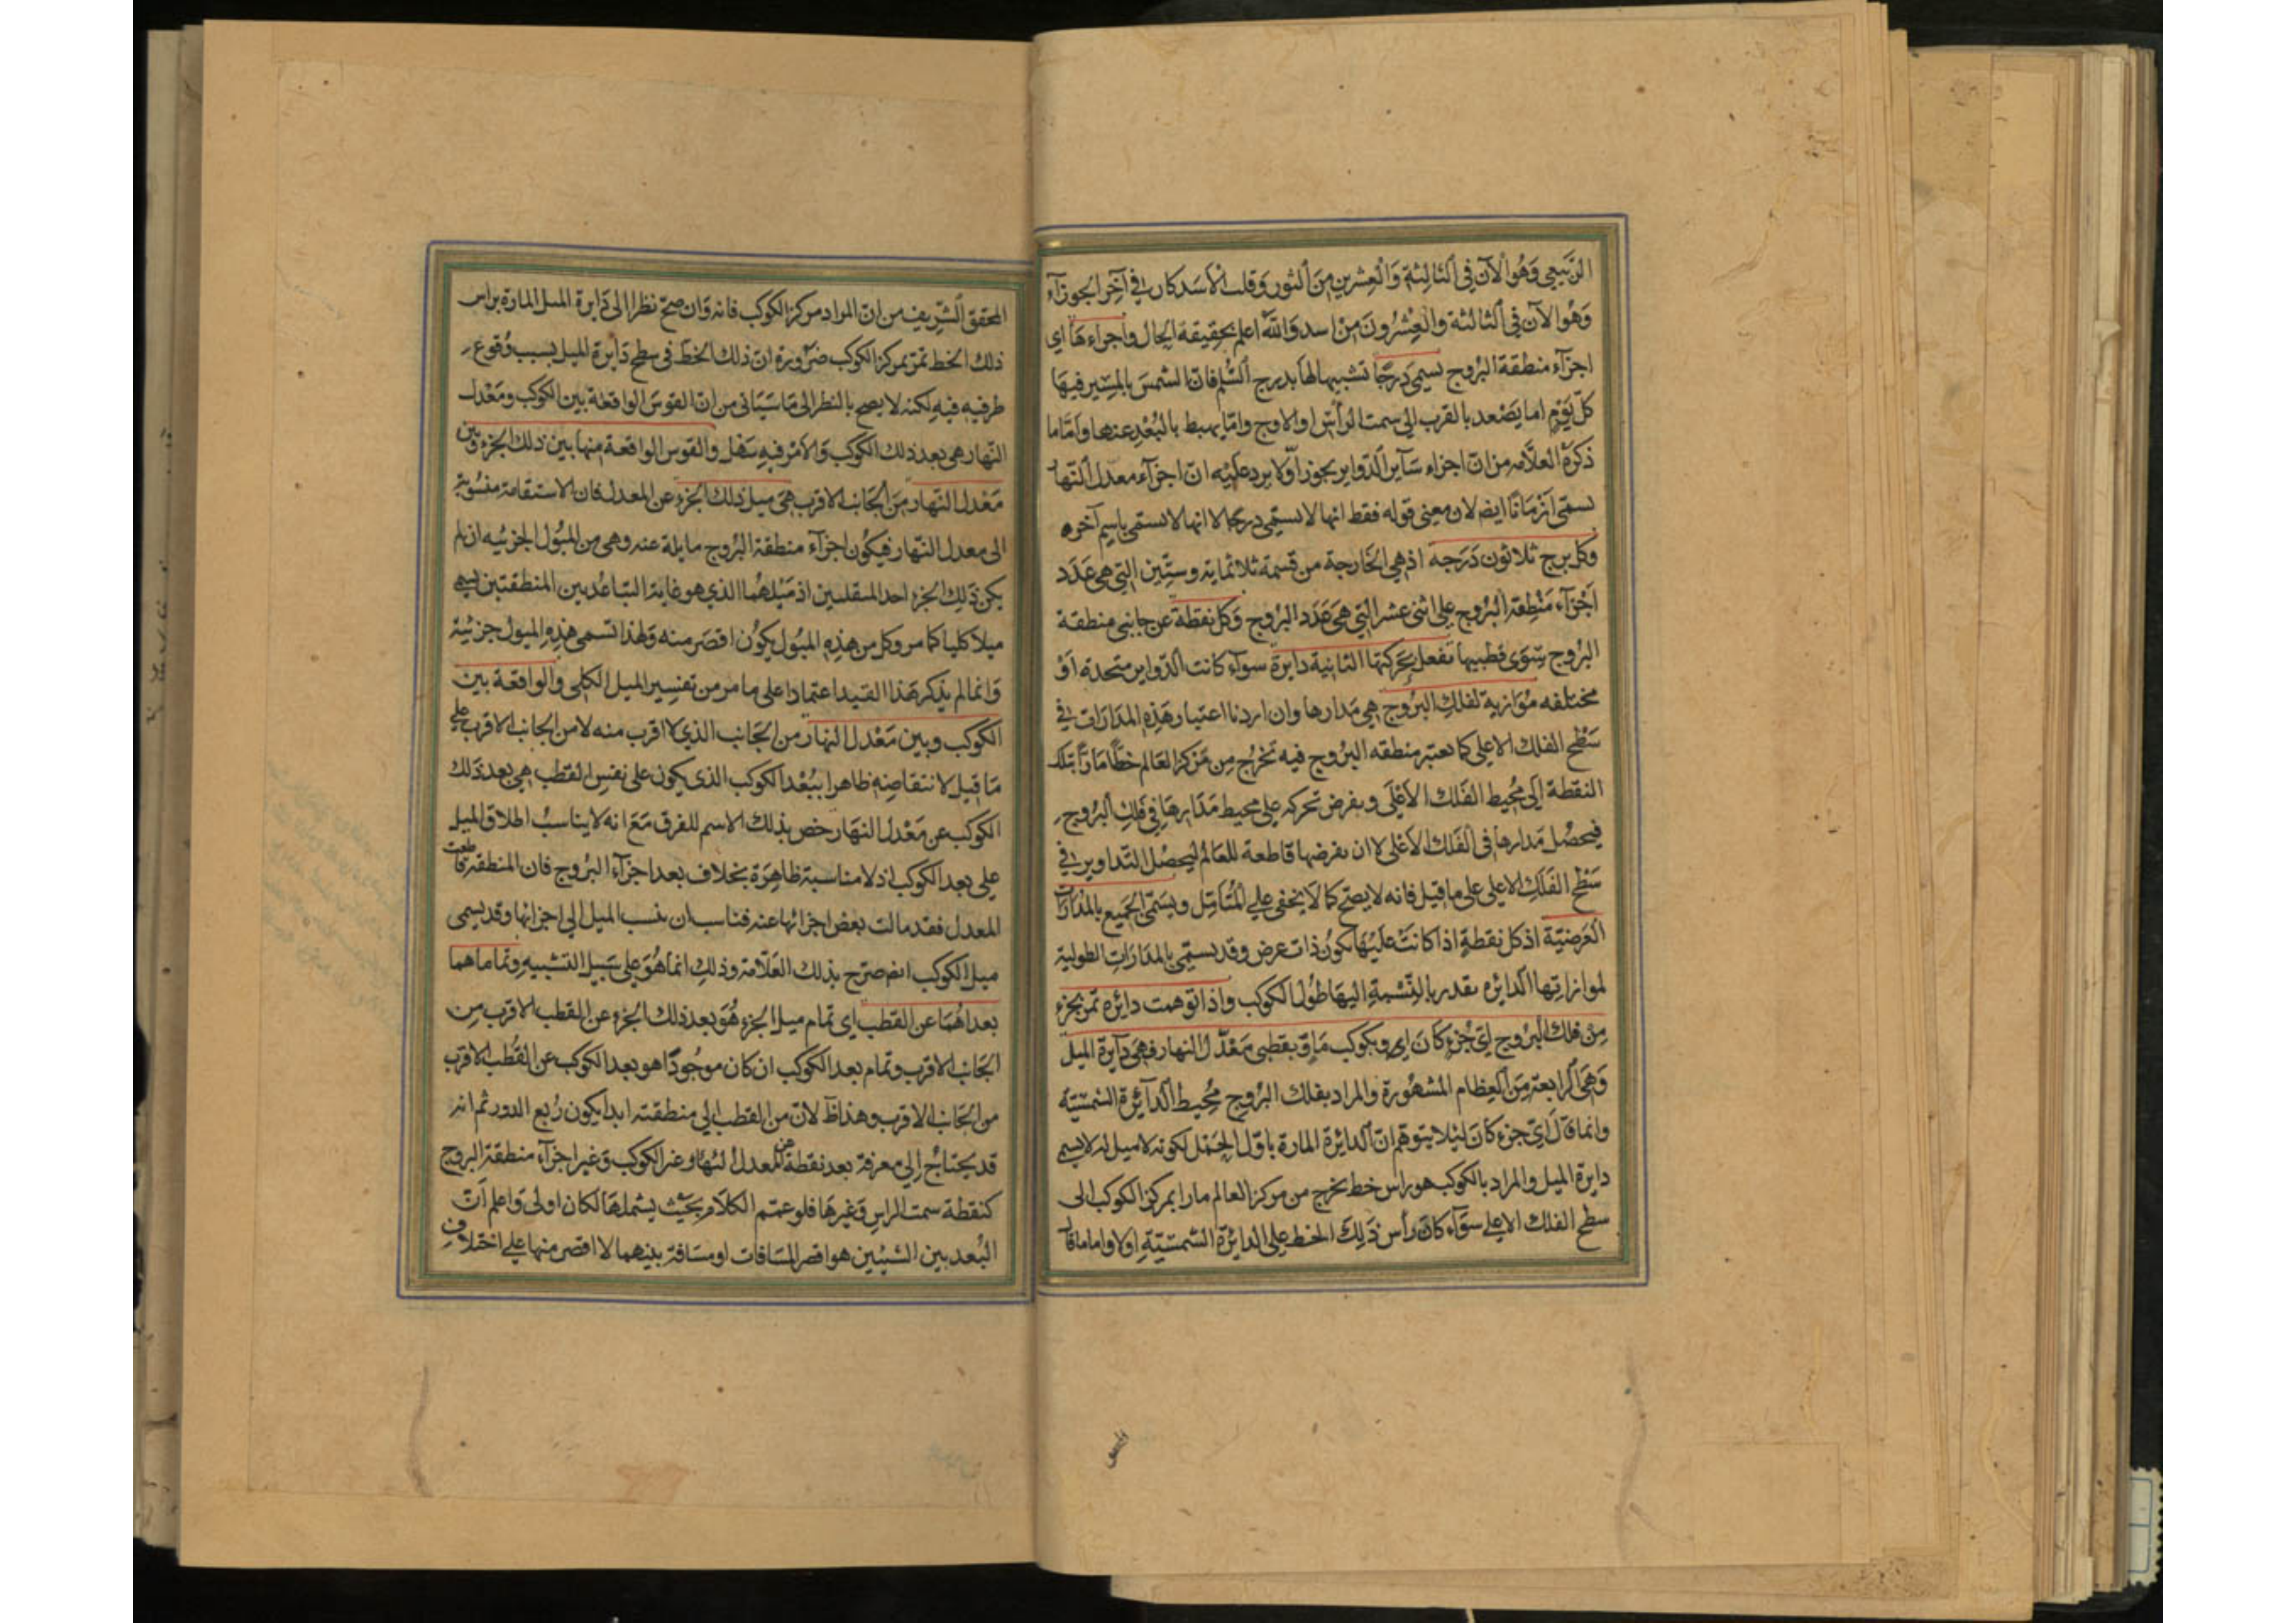 الربيعي وَهُوَ الآن فِي الثالثة وَالعشرين مِنَ الثور وَقلب الأسَد كان في آخر الجوزآء
وَهُوَ الآن في الثالثة والعِشرُونَ مِنْ اسد وَاللهُ اعلم بحقيقة الحال واجزاءهَا اي
اجزآء منطقة البروج تسمي دَرجًا تشبيهالها بدرج السُّلم فان الشمسَ بالمسِير فيهَا
كلّ يَوْم اما يَصْعد بالقرب الى سمت الرأس او الاوج وامّا يهبط بالبُعْدِ عنها وَامَّا ما
ذكرَهُ العلاّمه مِن انّ اجزاء سَآير الدّواير يجوز اوّلا يرد علَيْه انّ اجزآء معدل النّهار
تسمّى اَزْمَانًا ايضا لان معنى قوله فقط انها لا تسمّي درجًا لا انها لا تسمّى باسم آخره
وَكل برج ثلاثون دَرَجة اذ هي الخَارجة من قسمة ثلاثمايه وستّين التي هي عَدَد
اَجْزآء مَنْطِقة البرُوج على اثنى عشر التي هي عَدَد البرُوج وَكل نقطة عن جانبي منطقة
البرُوج سِوَى قطبيها تفعل بحَركتها الثانية دايرة سوآء كانت الدّواير متحدة اَوْ
مختلفه مُوَازية لفلك البرُوج هي مَدارها وان اردنا اعتبار هَذِهِ المدَارَات في
سَطْح الفلك الاعلى كما نعتبر منطقه البرُوج فيه نَخرُج مِن مَرْكز العَالم خطّاً مَارّاً بتلك
النقطة اِلى مُحِيط الفَلك الاَعْلَى ونفرض تحركه على محيط مَدَارهَا في فَلك البرُوج
فيحصُل مَدارها في الفَلك الاَعْلى لا ان نفرضها قاطعة للعَالم ليحصُل التداوير في
سَطْح الفَلك الاعلى على ما قيل فانه لا يصحّ كما لَا يخفى على المُتَأمّل ويُسَمّى الجَميع بالمدَارَات
العَرضيّة اذ كل نقطةٍ اذا كانتْ علَيْهَا تكونُ ذات عرض وقد تسمّي بالمدَارَاتِ الطولية
لموازاتها الدايرَه تقدر بالنّسْبةِ اليهَا طُول الكوكب واذا توهمت دائرة تمرّ بجزءٍ
مِنْ فلك البرُوج اَيّ جُزءٍ كانَ اي وبكوكب مَا وبقطبي مَعَدّل النهار فهي دَآيرة الميل
وَهيَ الرابعة مِنَ العِظام المشهُورة والمراد بفلك البرُوج مُحِيط الدآئرة الشمسيّة
وانما قَالَ ايّ جزءٍ كانَ لئلا يتوهّم انّ الدائرة المارة باوّل الحَمَل لكونه لا ميل له لا يسمى
دايرة الميل والمراد بالكوكب هو راس خط يخرج من مركز العالم مارا بمركز الكوكب الى
سطح الفلك الاعلى سوَآء كانَ رأس ذَلِكَ الخط على الدايرة الشمسيّةِ اولا واما ما قال
المحقق الشّريف من انّ المراد مركز الكوكب فانه وَان صحّ نظرا الى دَايرة الميل المارة براس
ذلك الخط تمرّ بمركز الكوكب ضرُورة انّ ذلك الخطّ في سطح دَايرة الميل بسبب وُقوع
طرفيه فيه لكنه لا يصح بالنظر الى مَا سَيَأتي من انّ القوسَ الواقعة بين الكوكب ومَعْدل
النّهار هي بعد ذلك الكوكب وَالامْر فيهِ سَهْل والقوس الواقعة منها بين ذلك الجزءِ وبين
مَعْدل النّهار مِنَ الجَانب الاقرب هيَ ميل ذلك الجزءِ عن المعدل فان الاستقامة منسُوبة
الى معدل النّهار فيكُون اجزآء منطقة البرُوج مايلة عنه وهي من الميُول الجزئيه ان لم
يكن ذَلِك الجزء احد المنقلبين اذ مَيْلهُما الذي هو غاية التبَاعُد بين المنطقتين يسمى
ميلا كليا كما مر وكل من هذِهِ الميُول يكوُن اقصَر منه وَلهذا تسمى هَذِهِ الميول جزئية
وَانما لم يذكر هَذا القَيد اعتمادا على ما مر من تفسِير الميل الكلي والواقعة بين
الكوكب وبين مَعْدل النهار من الجَانب الذي لا اقرب منه لا من الجانب الاقرب على
مَا قيل لانتقاضِهِ ظاهرا ببُعْد الكوكب الذي يكون على نفس القطب هي بعد ذَلك
الكوكب عن مَعْدل النهَار خص بذلك الاسم للفرق مَعَ انه لا يناسبُ اطلاق الميل
على بعد الكوكب اذ لا مناسبة ظاهِرَة بخلاف بعد اجزآء البرُوج فان المنطقة قاطعت
المعدل فقد مالت بعض اجزائها عنه فناسب ان ينسب الميل الى اجزائها وقد يسمى
ميل الكوكب ايضا صرّح بذلك العَلاّمة وذلِك انما هُوَ على سَبيل التشبيهِ وتماماهما
بعداهُمَا عن القطب اي تمام ميل الجزءِ هُوَ بعد ذلك الجزء عن القطب الاقرب مِن
الجَانب الاقرب وتمام بعد الكوكب ان كان موجُودًا هو بعد الكوكب عن القُطب الاقرب
من الجَانب الاقرب وهذا ظ لانّ من القطب الى منطقته ابدا يكون رُبع الدور ثم انه
قد يحتاجُ اِلى معرفة بعد نقطة من معدل النهار وغير الكوكب وَغير اجزآء منطقة البروج
كنقطة سمت الراسِ وَغيرهَا فلو عمّم الكلاَم بحَيْث يشملهَا لكان اولى وَاعلم اَنّ
البُعد بين الشيئين هو اقصر المسَافات او مسَافة بينهما لا اقصر منها على اختلاف